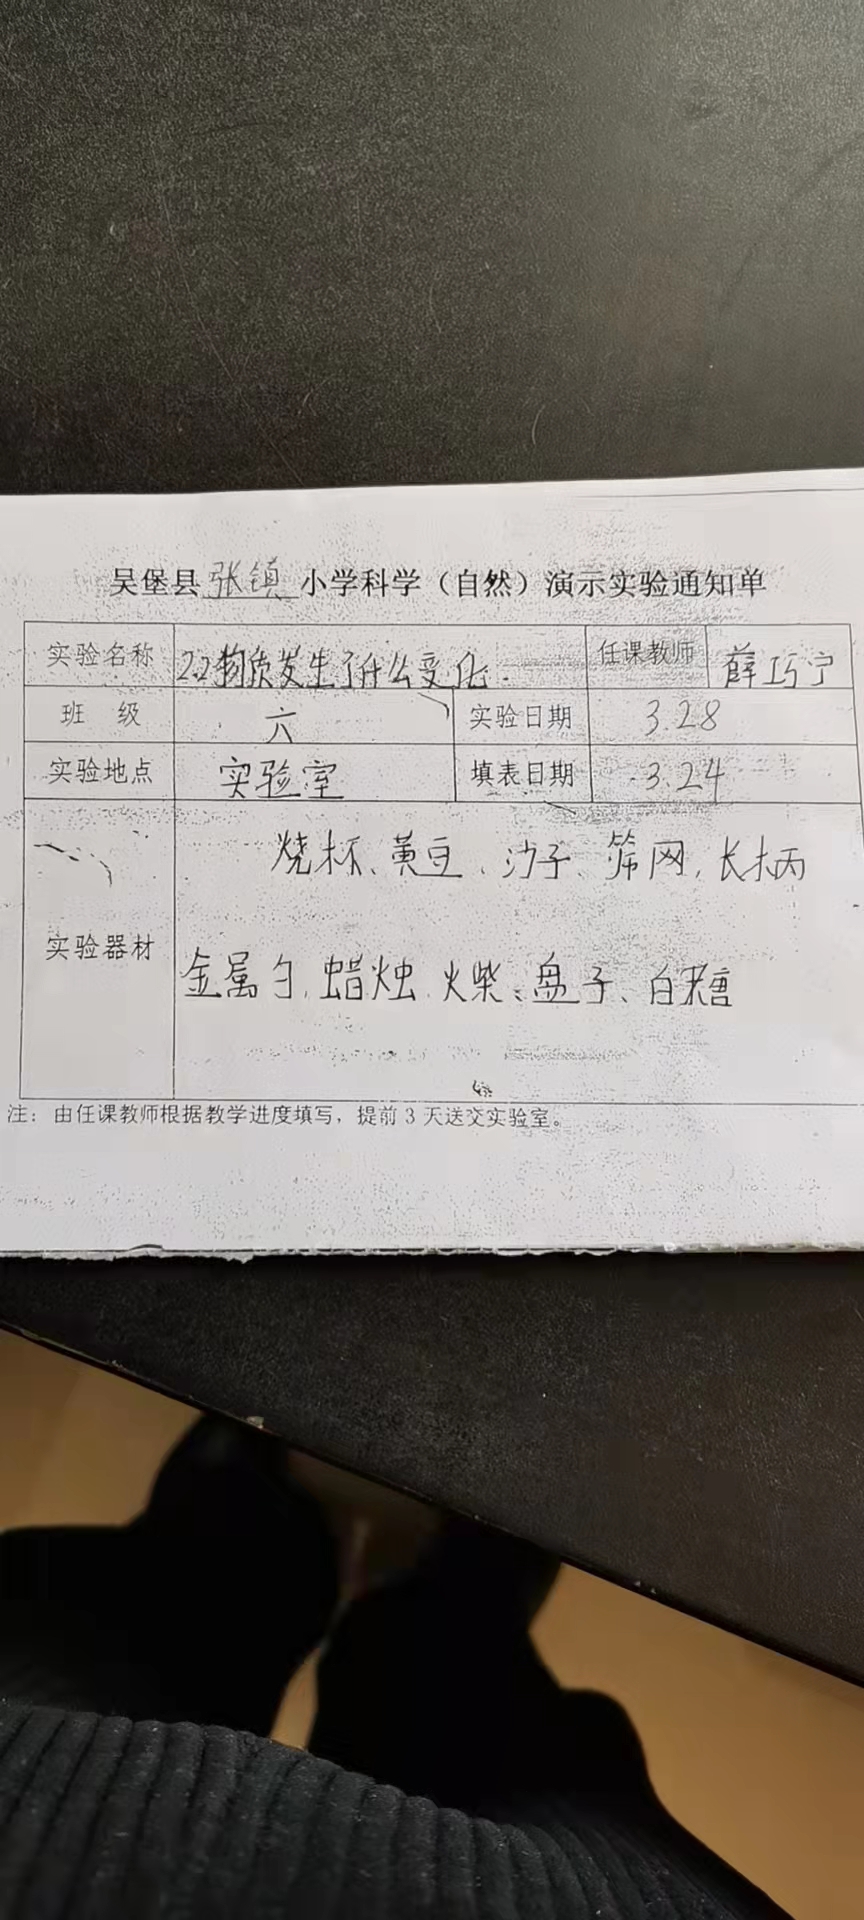 吴堡县张镇小学科学（自然）演示实验通知单
实验名称 2.2物质发生了什么变化. 任课教师 薛巧宁
班 级 六 实验日期 3.28
实验地点 实验室 填表日期 3.24
实验器材 烧杯、黄豆、沙子、筛网,长柄
金属勺,蜡烛、火柴、盘子、白糖
注：由任课教师根据教学进度填写，提前3天送交实验室。